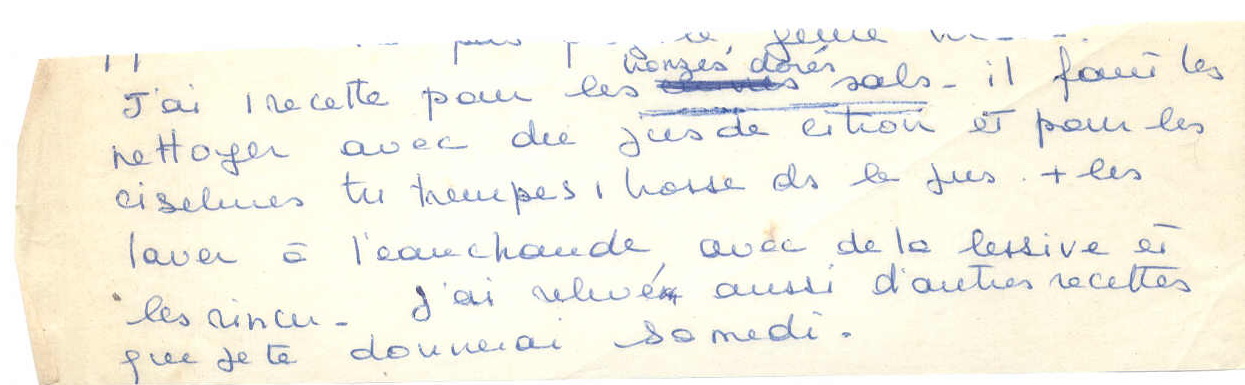 J'ai 1 recette pour les bronzés dorés sals - il faut les
nettoyer avec du jus de citron et pour les
ciselures tu trempes 1 brosse ds le jus. + les
laver à l'eau chaude, avec de la lessive et
les rincer - J'ai relevé aussi d'autres recettes
que je te donnerai samedi.